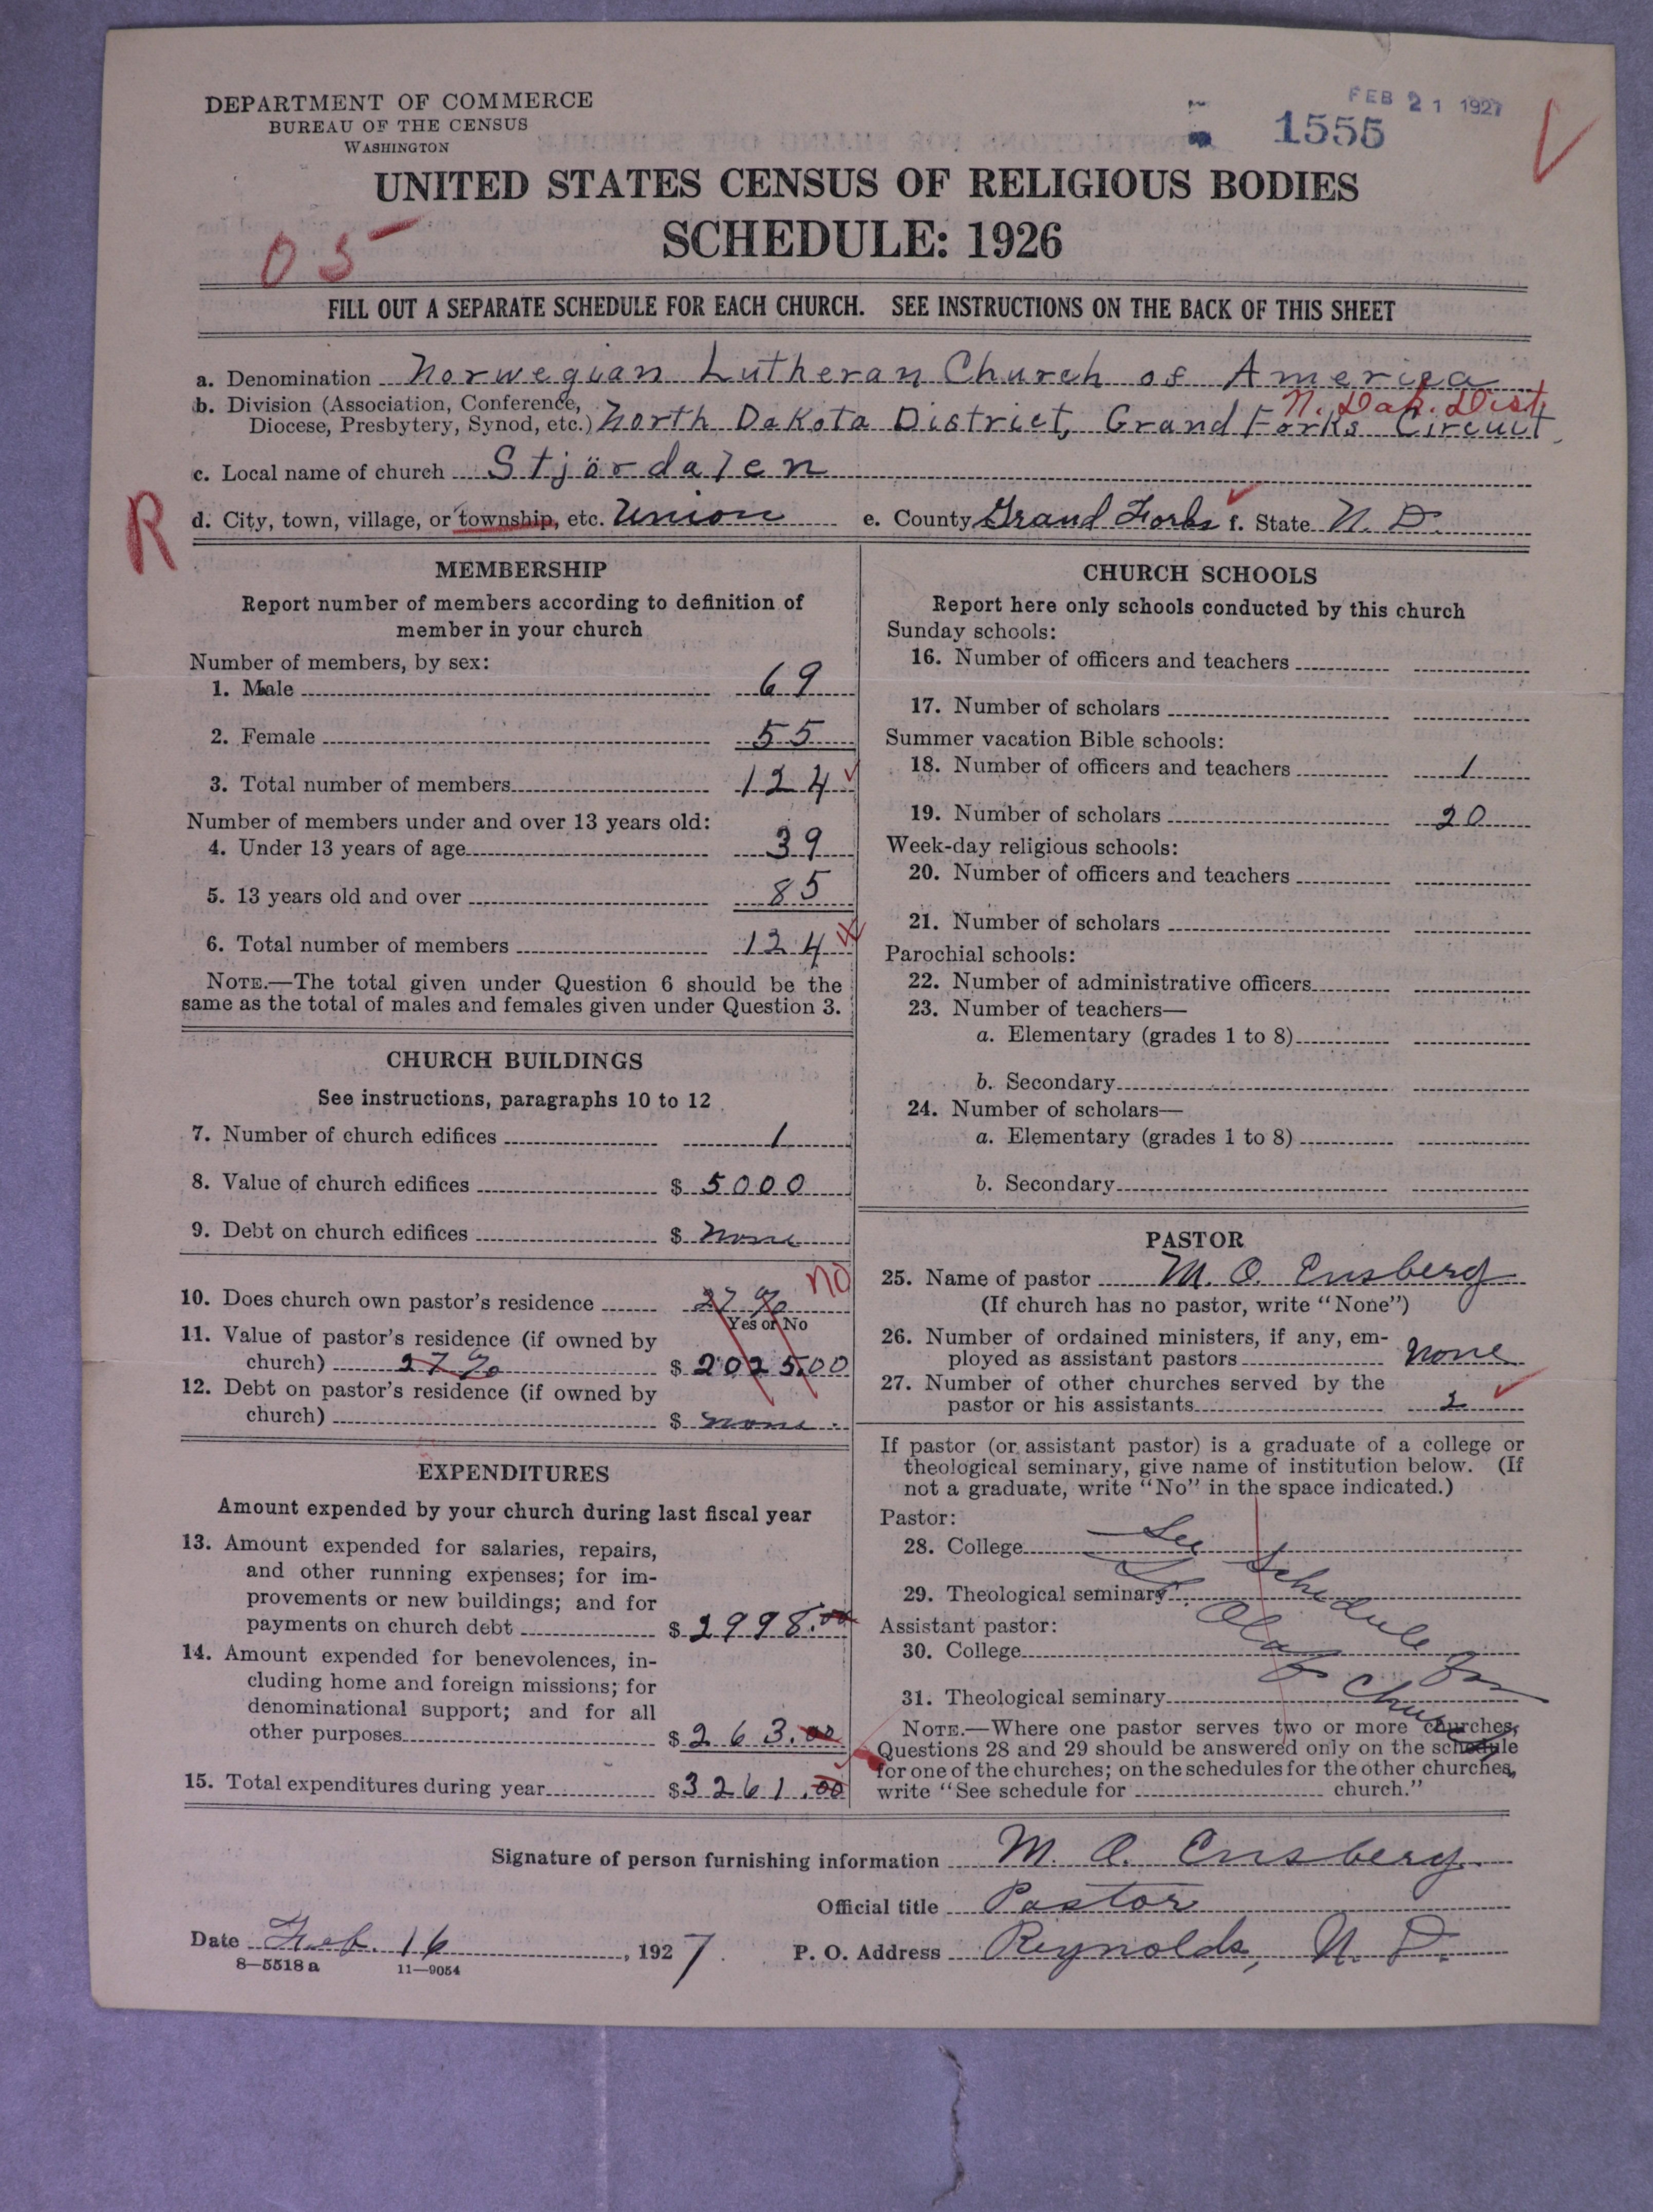 DEPARTMENT OF COMMERCE
BUREAU OF THE CENSUS
WASHINGTON
FEB 21 1927
1555
UNITED STATES CENSUS OF RELIGIOUS BODIES
SCHEDULE: 1926
05
FILL OUT A SEPARATE SCHEDULE FOR EACH CHURCH. SEE INSTRUCTIONS ON THE BACK OF THIS SHEET
a. Denomination Norwegian Lutheran Church of America
N. Dak. Dist
b. Division (Association, Conference,
Diocese, Presbytery, Synod, etc.) North Dakota District, Grand Forks Circuit
c. Local name of church Stjördalen
R
d. City, town, village, or township, etc. Union e. County Grand Forks f. State N. D.
MEMBERSHIP
Report number of members according to definition of
member in your church
Number of members, by sex:
1. Male 69
2. Female 55
3. Total number of members 124
Number of members under and over 13 years old:
4. Under 13 years of age 39
5. 13 years old and over 85
6. Total number of members 124
NOTE.—The total given under Question 6 should be the
same as the total of males and females given under Question 3.
CHURCH BUILDINGS
See instructions, paragraphs 10 to 12
7. Number of church edifices 1
8. Value of church edifices $ 5000
9. Debt on church edifices $ none
no
10. Does church own pastor's residence 27 %
Yes or No
11. Value of pastor's residence (if owned by
church) 27 % $ 202500
12. Debt on pastor's residence (if owned by
church) $ none
EXPENDITURES
Amount expended by your church during last fiscal year
13. Amount expended for salaries, repairs,
and other running expenses; for im-
provements or new buildings; and for
payments on church debt $ 2998.00
14. Amount expended for benevolences, in-
cluding home and foreign missions; for
denominational support; and for all
other purposes $ 263.00
15. Total expenditures during year $ 3261.00
CHURCH SCHOOLS
Report here only schools conducted by this church
Sunday schools:
16. Number of officers and teachers
17. Number of scholars
Summer vacation Bible schools:
18. Number of officers and teachers 1
19. Number of scholars 20
Week-day religious schools:
20. Number of officers and teachers
21. Number of scholars
Parochial schools:
22. Number of administrative officers
23. Number of teachers—
a. Elementary (grades 1 to 8)
b. Secondary
24. Number of scholars—
a. Elementary (grades 1 to 8)
b. Secondary
PASTOR
25. Name of pastor M. O. Ensberg
(If church has no pastor, write "None")
26. Number of ordained ministers, if any, em-
ployed as assistant pastors none
27. Number of other churches served by the
pastor or his assistants 2
If pastor (or assistant pastor) is a graduate of a college or
theological seminary, give name of institution below. (If
not a graduate, write "No" in the space indicated.)
Pastor:
28. College
29. Theological seminary
Assistant pastor:
30. College
31. Theological seminary
See Schedule for
St. Olaf Church
NOTE.—Where one pastor serves two or more churches,
Questions 28 and 29 should be answered only on the schedule
for one of the churches; on the schedules for the other churches,
write "See schedule for church."
Signature of person furnishing information M. O. Ensberg
Official title Pastor
Date Feb. 16, 1927. P. O. Address Reynolds, N. D.
8—5518 a 11—9054